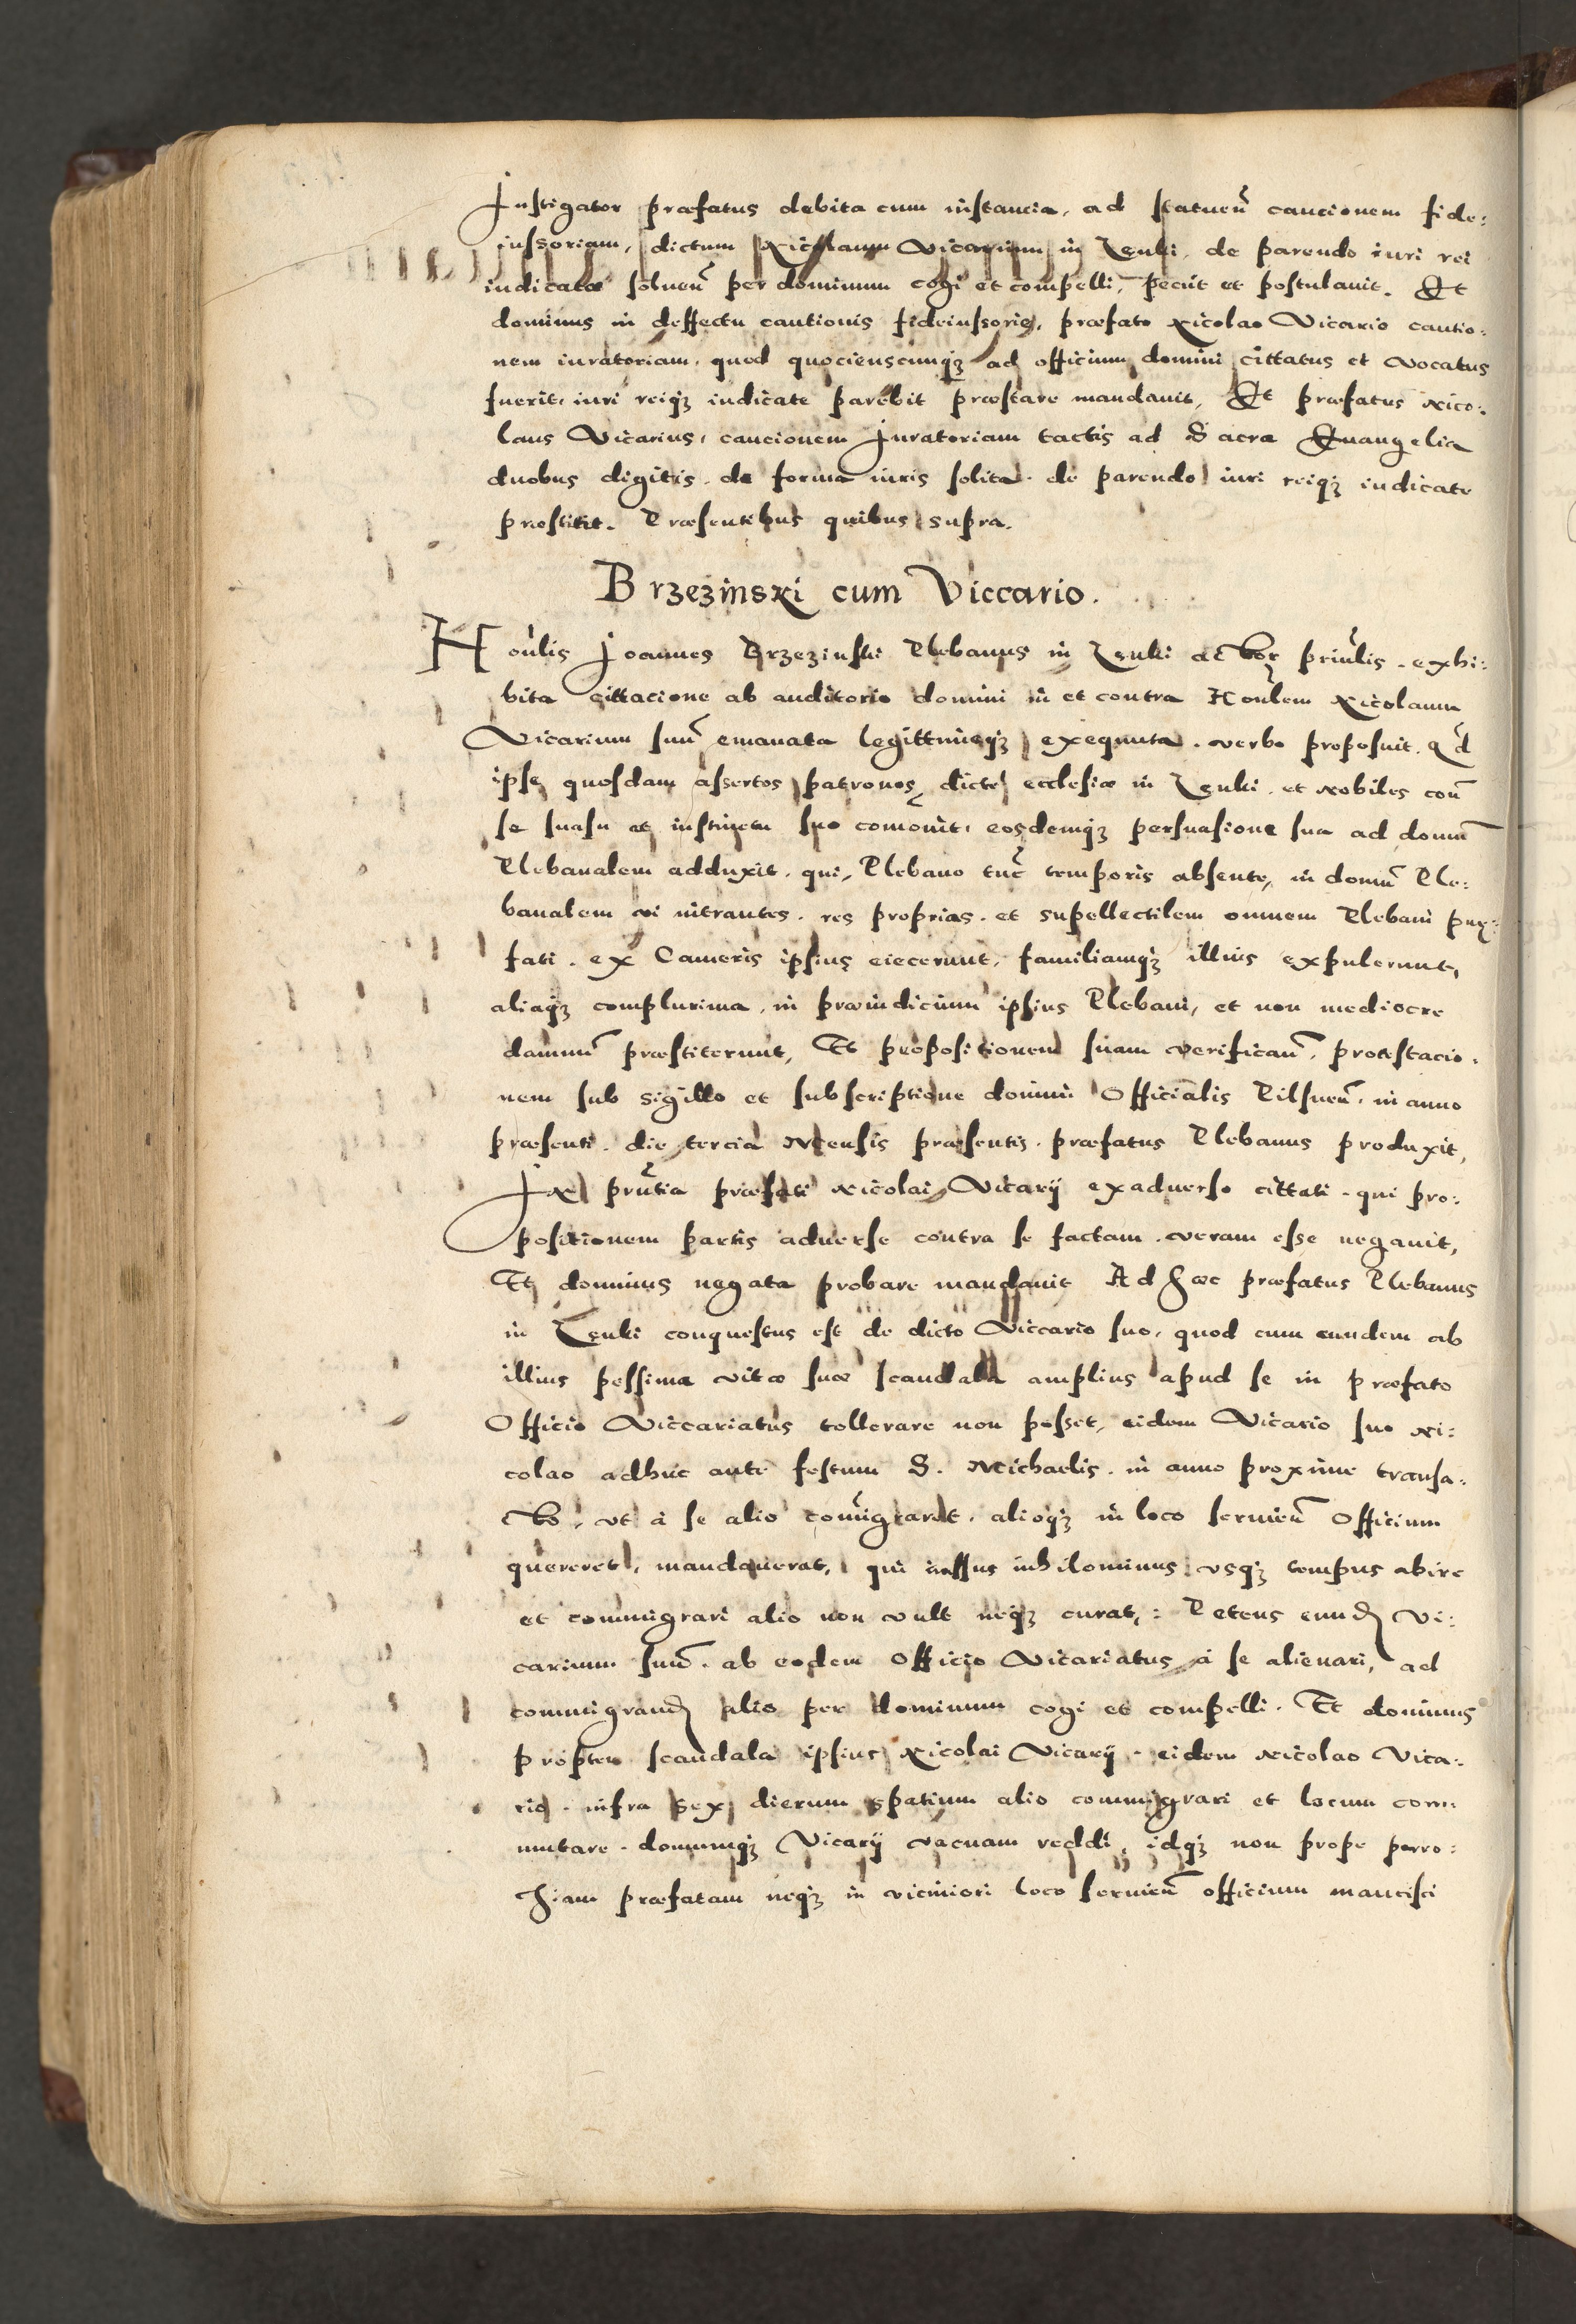 Instigator præfatus debita cum instancia, ad statuen̄ caucionem fide:
iussoriam, dictum Nicolaum Vicarium in Lęnki, de parendo iuri rei
iudicatæ soluen̄ per dominum cogi et compelli, peciit et postulauit. Et
dominus in deffectu cautionis fideiussorię, præfato Nicolao Vicario cautio:
nem iuratoriam, quod quocienscunqꝫ ad officium domini cittatus et vocatus
fuerit, iuri reiqꝫ iudicate parebit præstare mandauit, Et præfatus Nico:
laus Vicarius, caucionem Iuratoriam tactis ad Sacra Euangelia
duobus digitis, de forma iuris solita, de parendo iuri reiqꝫ iudicate
præstitit. Præsentibus quibus supra.
Brzezinski cum Viccario.
Honͬlis Joannes Brzezinski Plebanus in Lęnki actor prin̄lis, exhi:
bita cittacione ab auditorio domini in et contra Honͬlem Nicolaum
Vicarium suū emanata legittimeqꝫ exequuta, verbo proposuit, qd̄
ipse quosdam assertos patronos dictę ecclesiæ in Lęnki, et Nobiles coū
se suasu et instinctu suo comouit, eosdemqꝫ persuasione sua ad domū
Plebanalem adduxit, qui, Plebano tūc temporis absente, in domū Ple:
banalem vi intrantes, res proprias, et supellectilem omnem Plebani pręː
fati, ex Cameris ipsius eiecerunt, familiamqꝫ illius expulerunt,
aliaqꝫ complurima, in præiudicium ipsius Plebani, et non mediocre
damnū præstiterunt, Et propositionem suam verifican̄, protestacio:
nem sub sigillo et subscriptione domini Officialis Pilsnen̄, in anno
præsenti, die tercia Mensis præsentis, præfatus Plebanus produxit,
IN prn̄tia præfati Nicolai Vicarij exaduerso cittati, qui pro:
positionem partis aduerse contra se factam, veram esse negauit,
Et dominus negata probare mandauit Ad hæc præfatus Plebanus
in Lęnki conquestus est de dicto Viccario suo, quod cum eundem ab
illius pessima vitæ suæ scandala amplius apud se in præfato
Officio Viccariatus tollerare non posset, eidem Vicario suo Ni:
colao adhuc ante festum S. Michaelis, in anno proxime transa:
cto, vt à se alio com̄igraret, alioqꝫ in loco seruien̄ Officium
quereret, mandauerat, qui iussus nihilominus vsqꝫ tempus abire
et commigrari alio non vult neqꝫ curat,: Petens eund̄ Vi:
carium suū, ab eodem Officio Vicariatus à se alienari, ad
commigrand̄ alio per dominum cogi et compelli. Et dominus
propter scandala ipsius Nicolai Vicarij, eidem Nicolao Vica:
rio, infra sex dierum spatium alio commigrari et locum com:
mutare, domumqꝫ Vicarij vacuam reddi, idqꝫ non prope parro:
chiam præfatam neqꝫ in viciniori loco seruien̄ officium mancisci